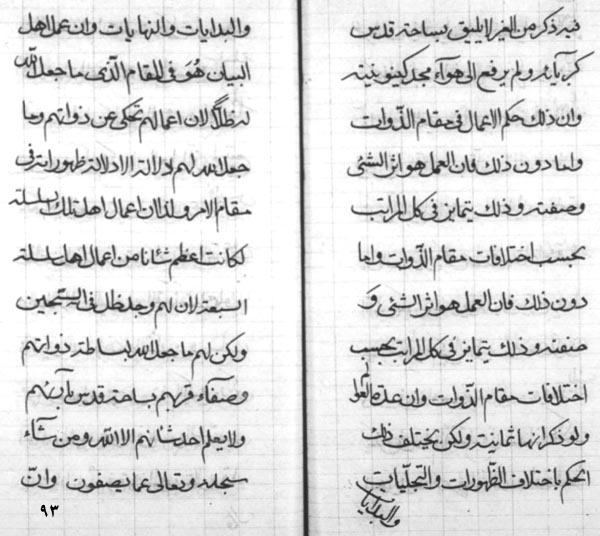 فيه ذكر من الغير لا يليق بساحة قدس
كبريائه ولم يرفع الى هوآء مجد كينونيته
وان ذلك حكم الاعمال فى مقام الذّوات
واما دون ذلك فان العمل هو اثر الشئى
وصفته وذلك يتمايز فى كل المراتب
بحسب اختلافات مقام الذّوات واما
دون ذلك فان العمل هو اثر الشئى وَ
صفته وذلك يتمايز فى كل المراتب بحسب
اختلافات مقام الذّوات وان عدة العوالم
ولو ذكر انها ثمانية ولكن يختلف ذلك
الحكم باختلاف الظّهورات والتجلّيات
والبدايات
والبدايات والنهايات وان عمل اهل
البيان هُوَ فى المقام الّذى ما جعل اللّه
له ظلّاً لان اعمالهم تحكى عن ذواتهم وما
جعل اللّه لهم دلالة الا دلالة ظهوراته فى
مقام الامر ولذا ان اعمال اهل تلك سلسلة
لكانت اعظم شئانا من اعمال اهل سلسلة
السبعة لان لهم وجد ظل فى السّجين
ولكن لهم ما جعل اللّه لبساطة ذواتهم
وصفآء قربهم بساحة قدس بآئهم
ولا يعلم احد شانهم الا اللّه ومن شآء
سبحانه وتعالى عما يصفون وانّ
٩٣